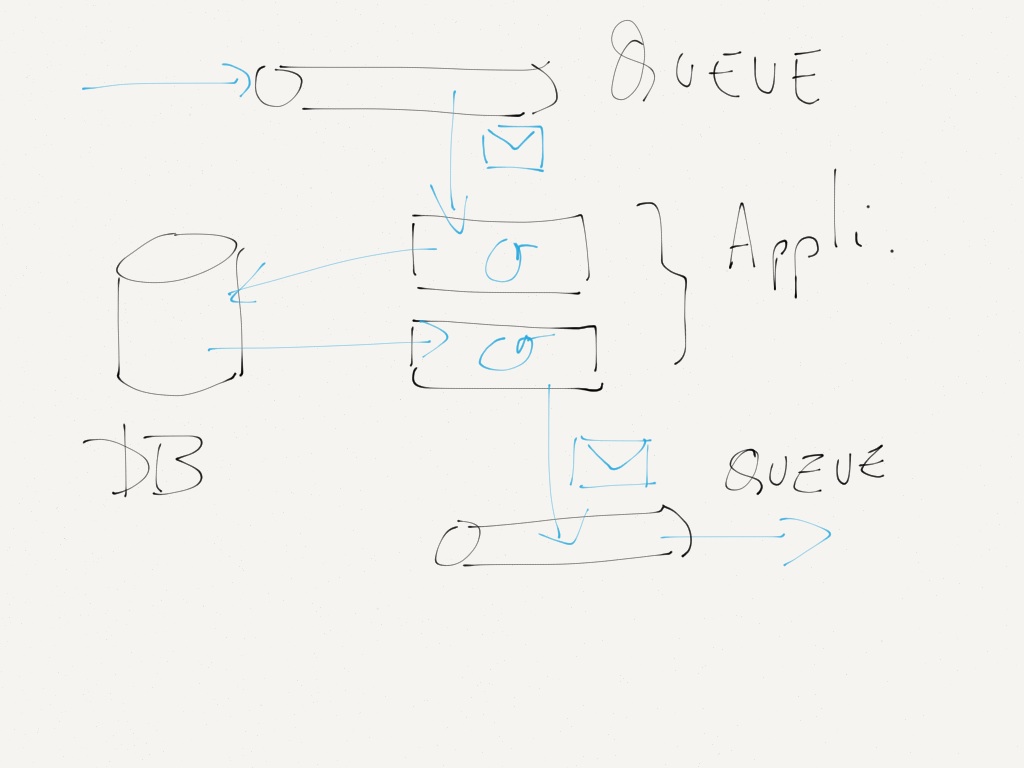 QUEUE
Appli.
DB
QUEUE